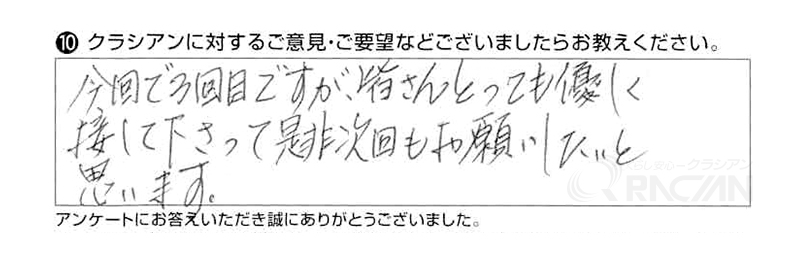 ⑩ クラシアンに対するご意見・ご要望などございましたらお教えください。
今回で3回目ですが、皆さんとっても優しく
接して下さって是非次回もお願いしたいと
思います。
暮らし安心クラシアン
QRACIAN
アンケートにお答えいただき誠にありがとうございました。